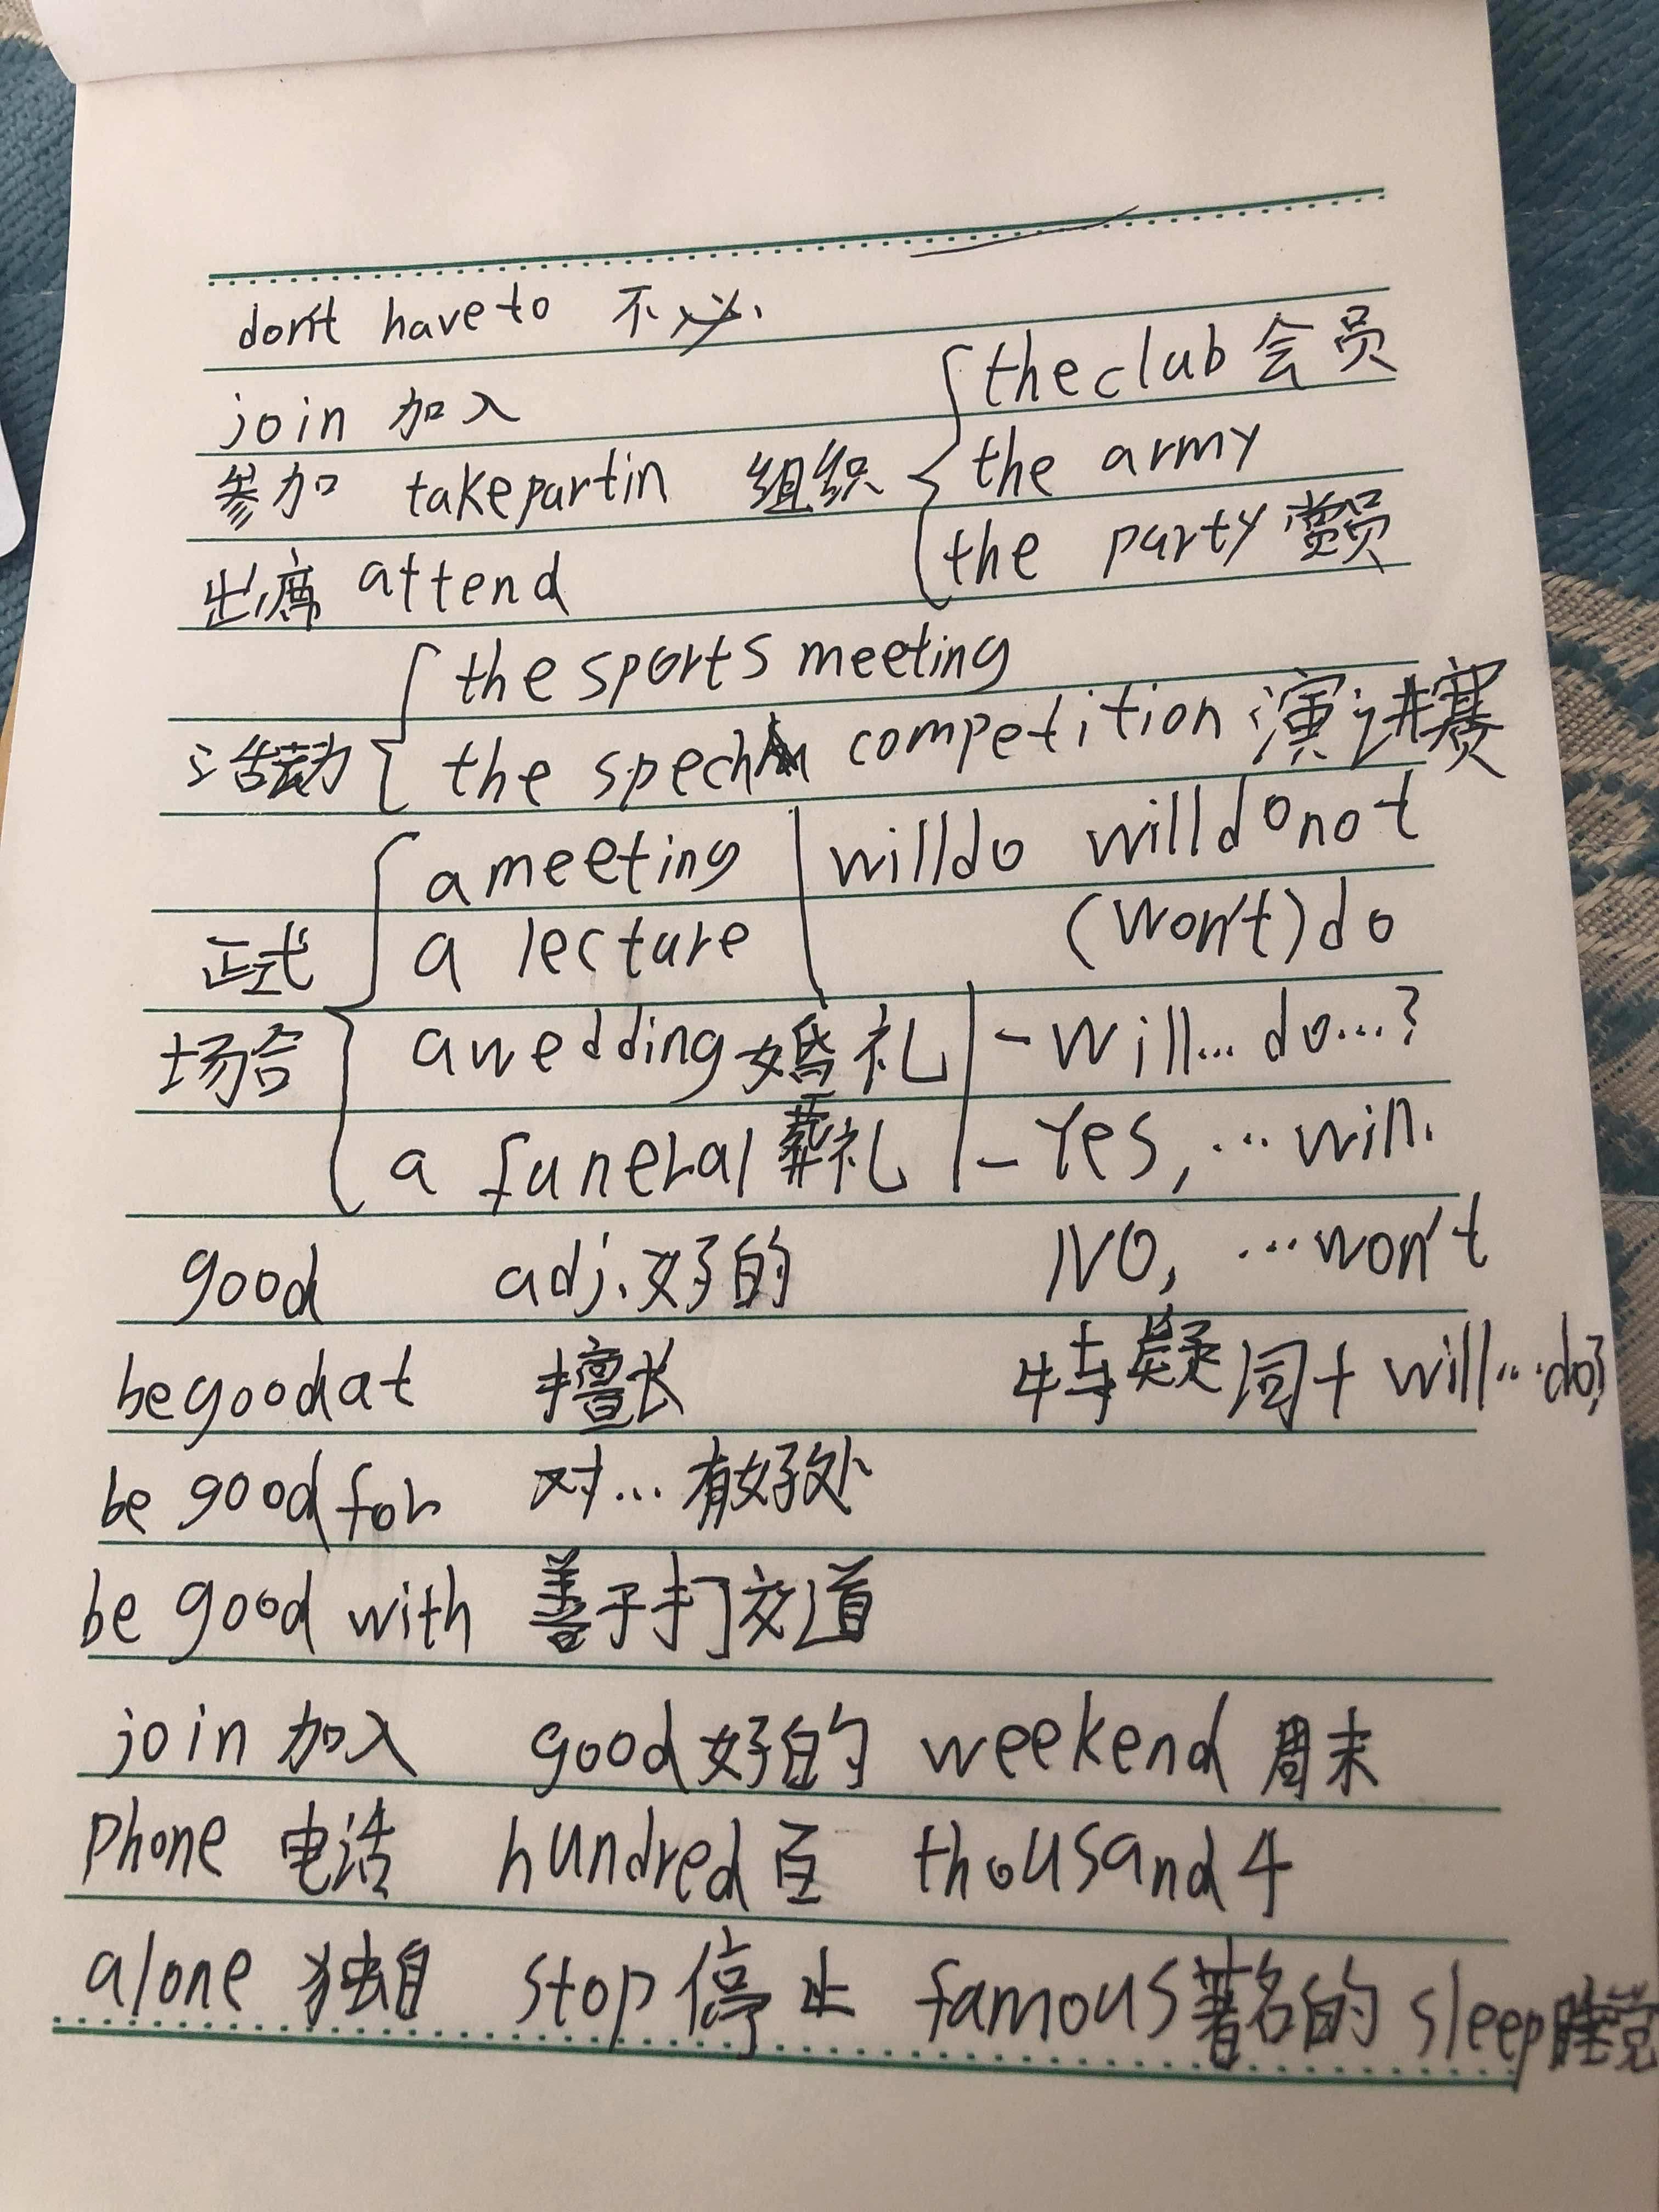 don't have to 不必
join 加入
the club 会员
参加 take part in 组织 the army
the party 党员
出席 attend
the sports meeting
活动 the spech competition 演讲赛
a meeting will do will do not
正式 a lecture (won't) do
场合 a wedding 婚礼 - Will... do...?
a funeral 葬礼 - Yes, ... will.
good adj. 好的 NO, ... won't
be good at 擅长 特疑词 + will... do?
be good for 对...有好处
be good with 善于打交道
join 加入 good 好的 weekend 周末
Phone 电话 hundred 百 thousand 千
alone 独自 stop 停止 famous 著名的 sleep 睡觉